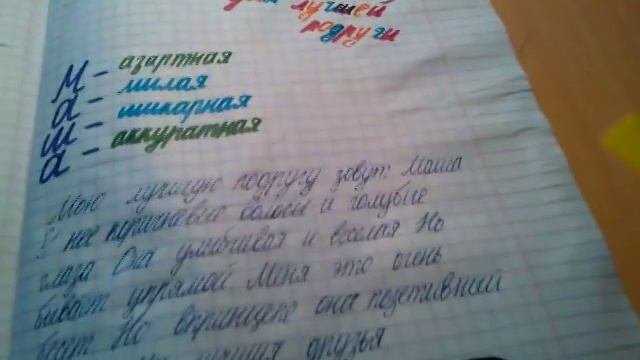 лучшей
подруги
М - азартная
а - милая
ш - шикарная
а - аккуратная
Мою лучшую подругу зовут: Маша
У нее коричневые волосы и голубые
глаза Она улыбчивая и веселая Но
бывает упрямой. Меня это очень
бесит Но впринцепе она позетивный
лучшия друзья